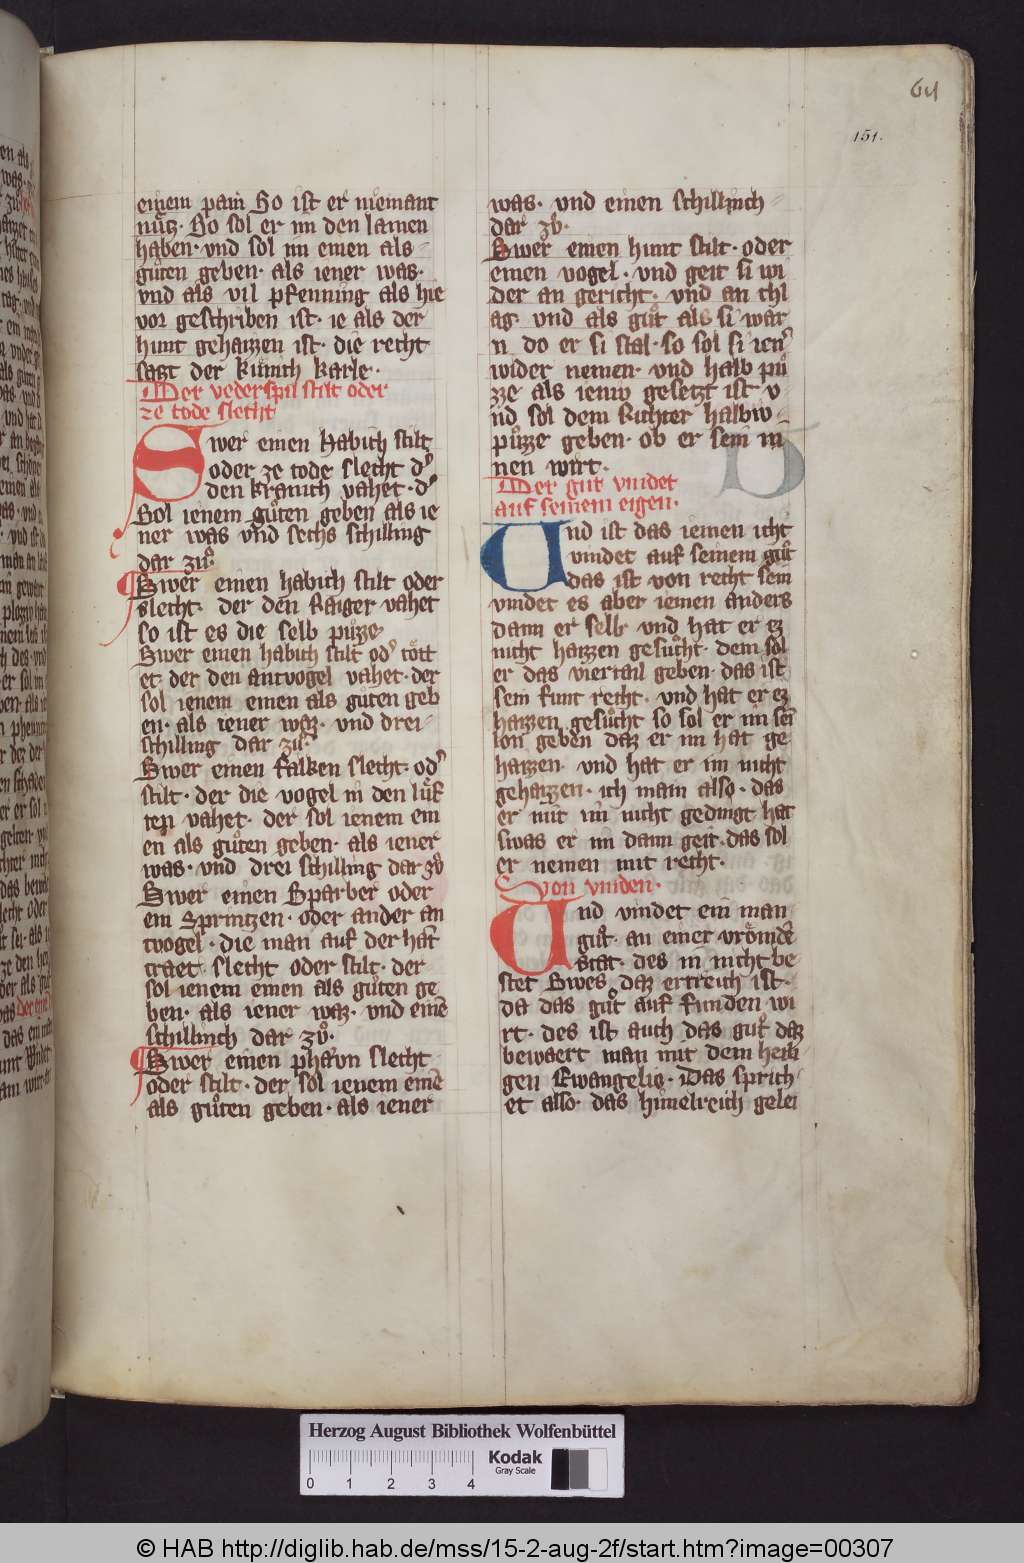 64
151.
einem pain So ist er niemant
nuͤtz· So sol er im den lamen
haben· vnd sol im einen als
guͦten geben· als iener was·
vnd als vil pfenning als hie
vor geschriben ist· ie als der
hunt gehaizzen ist· die recht
satzt der kuͤnich karle·
Der vederspil stilt oder
ze tode slecht
Swer einen habich stilt
oder ze tode slecht d᾽
den kranich vahet· d᾽
Sol ienem guͦten geben als ie
ner was vnd sechs schilling
dar zuͦ·
Swer einen habich stilt oder
slecht· der den Raiger vahet
so ist es die selb puͤzze
Swer einen habich stilt od᾽ toͤtt
et· der den antvogel vahet· der
sol ienem einen als guten geb
en· als iener waz· vnd drei
schilling dar zuͦ·
Swer einen falken slecht· od᾽
stilt· der die vogel in den luͤf
ten vahet· der sol ienem ein
en als guͦten geben· als iener
was· vnd drei schilling dar zuͦ
Swer einen Sparber oder
ein Sprintzen· oder ander an
tvogel· die man auf der hant
traet· slecht oder stilt· der
sol ienem einen als guͦten ge
ben· als iener waz· vnd einē
schillinch dar zuͦ·
Swer einen phawn slecht
oder stilt· der sol ienem einē
als guͦten geben· als iener
was· vnd einen schillinch
dar zuͦ·
Swer einen hunt stilt· oder
einen vogel· vnd geit si wi
der an gericht· vnd an chl
ag· vnd als guͦt als si war
n do er si stal· so sol si ien᾽
wider nemen· vnd halb puͤ
zze als ienm gesetzt ist v
nd sol dem Richter halbw
puͤzze geben· ob er sein in
nen wirt·
Der gut vindet
auf seinem eigen·
Und ist das iemen icht
vindet auf seinem guͦt
das ist von recht sein
vindet es aber iemen anders
dann er selb vnd hat er ez
nicht haizzen gesuͦcht· dem sol
er das viertail geben· das ist
sein funt recht· vnd hat er ez
haizzen gesuͦcht so sol er im sein
lon geben daz er im hat ge
haizzen· vnd hat er im nicht
gehaizzen· ich main also· das
er mit im nicht gedingt hat
swas er im dann geit· das sol
er nemen mit recht·
Von vinden·
Und vindet ein man
guͦt· an einer vroͤmdē
stat· des in nicht be
stet Swes daz ertreich ist·
da das guͦt auf funden wi
rt· des ist auch das guͦt daz
bewaert man mit dem heili
gen Ewangelio· Das sprich
et also· das himelreich gelei
Herzog August Bibliothek Wolfenbüttel
Kodak
Gray Scale
0 1 2 3 4
© HAB http://diglib.hab.de/mss/15-2-aug-2f/start.htm?image=00307